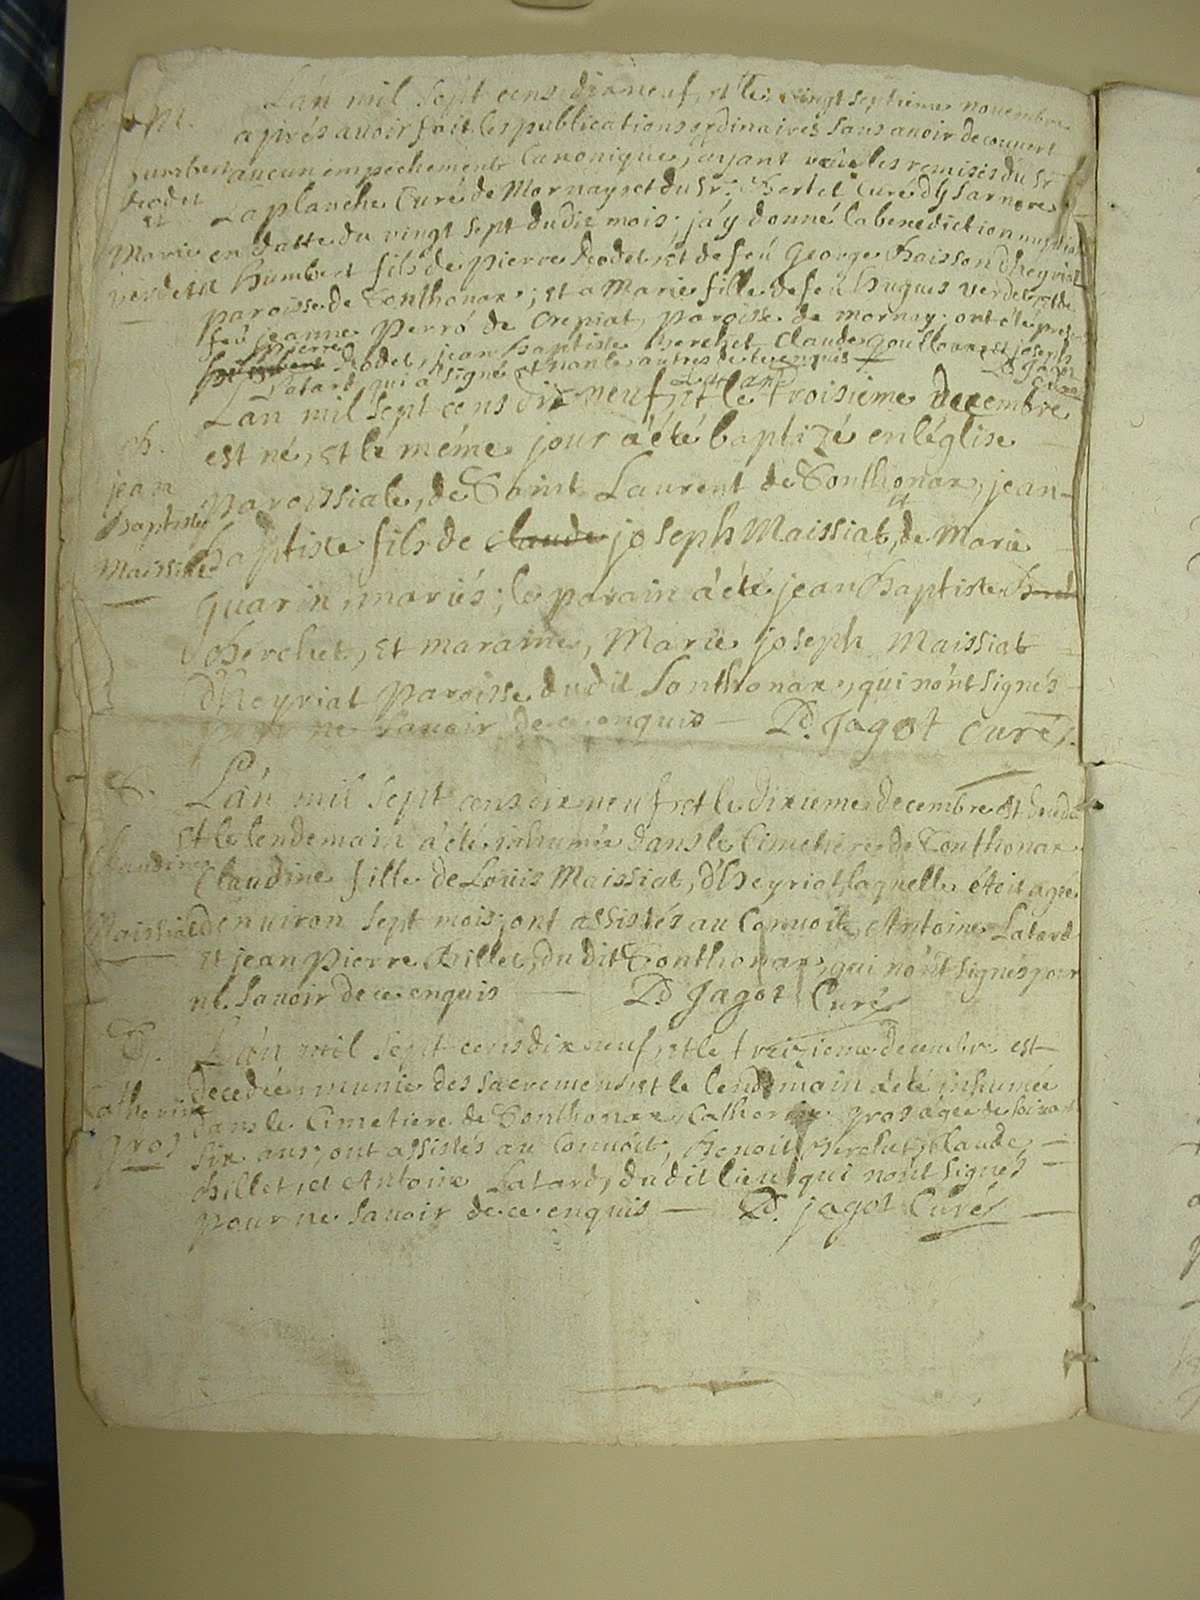 M.
Lan mil sept cens dix neuf, et le vingt septieme novembre
aprés avoir fait les publications ordinaires sans avoir decouvert
humbert aucun empechement Canonique, ayant les remises du Sr
Laplanche Curé de Mornay, et du Sr; Curé
Marie en datte du vingt sept dudit mois; j'ay donné la benediction
humbert fils de pierre et de feu George d'heyriat
paroisse de Sonthonax; et a Marie fille de feu hugues
feu jeanne Perró de Crepiat, paroisse de mornay. ont été
pierre jean Baptiste Berchet, Claude et joseph
Latard, qui a signé et non les autres de ce enquis P.d Jagot Curé
Lan mil sept cens dix neuf, et le troisieme decembre
B.
est né, et le méme jour a été baptizé en léglise
jean
paroissiale, de Saint Laurent de Sonthonax, jean-
baptiste
baptiste fils de claude joseph Maissiat, et de Marie
Maissiat
Guarin mariés; le parain a été jean Baptiste
Berchet, et maraine, Marie joseph Maissiat
d'heyriat paroisse dudit Sonthonax, qui n'ont signés
pour ne savoir de ce enquis — P.d Jagot Curé
S.
Lán mil sept cens dix neuf et le dixieme decembre est
et le lendemain a été inhumée dans le Cimetiere de Sonthonax
Claudine
Claudine fille de Loüis Maissiat, d'heyriat laquelle étoit agée
Maissiat d'environ sept mois; ont assistés au Convoit, Antoine Latard
et jean Pierre Billet, du dit Sonthonax, qui n'ont signés pour
ne savoir de ce enquis — P.d Jagot Curé
S.
Lán mil sept cens dix neuf, et le treizieme decembre est
decedée, munie des sacremens, et le lendemain a été inhumée
Catherine
dans le Cimetiere de Sonthonax, Catherine gros agée de soixante
gros
six ans, ont assistés au Convoit; Benoit Berchet, Claude
Billet, et Antoine Latard, du dit lieu qui n'ont signés
pour ne savoir de ce enquis — P.d jagot Curé